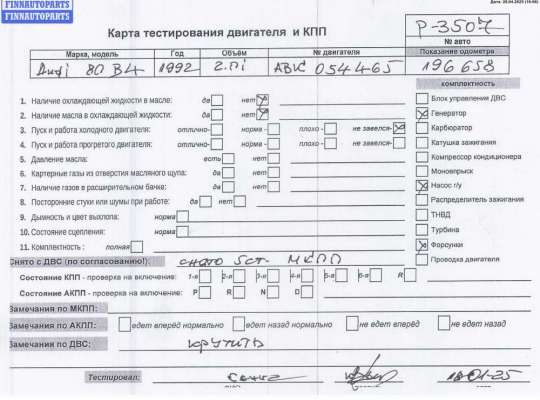 FINNAUTOPARTS
FINNAUTOPARTS
Карта тестирования двигателя и КПП
P-3507
№ авто
Марка, модель Год Объём № двигателя Показание одометра
Audi 80 B4 1992 2.0i ABK 054465 196 658
комплектность
1. Наличие охлаждающей жидкости в масле: да нет
2. Наличие масла в охлаждающей жидкости: да нет
3. Пуск и работа холодного двигателя: отлично- норма - плохо - не завелся-
4. Пуск и работа прогретого двигателя: отлично- норма - плохо - не завелся-
5. Давление масла: есть нет
6. Картерные газы из отверстия масляного щупа: да нет
7. Наличие газов в расширительном бачке: да нет
8. Посторонние стуки или шумы при работе: да нет
9. Дымность и цвет выхлопа: норма
10. Состояние сцепления: норма
11. Комплектность : полная
Блок управления ДВС
Генератор
Карбюратор
Катушка зажигания
Компрессор кондиционера
Моновпрыск
Насос г/у
Распределитель зажигания
ТНВД
Турбина
Форсунки
Проводка двигателя
Снято с ДВС (по согласованию!): снято 5ст- МКПП
Состояние КПП - проверка на включение: 1-я 2-я 3-я 4-я 5-я 6-я R
Состояние АКПП - проверка на включение: P R N D
Замечания по МКПП:
Замечания по АКПП: едет вперёд нормально едет назад нормально не едет вперёд не едет назад
Замечания по ДВС: крутить
Тестировал: